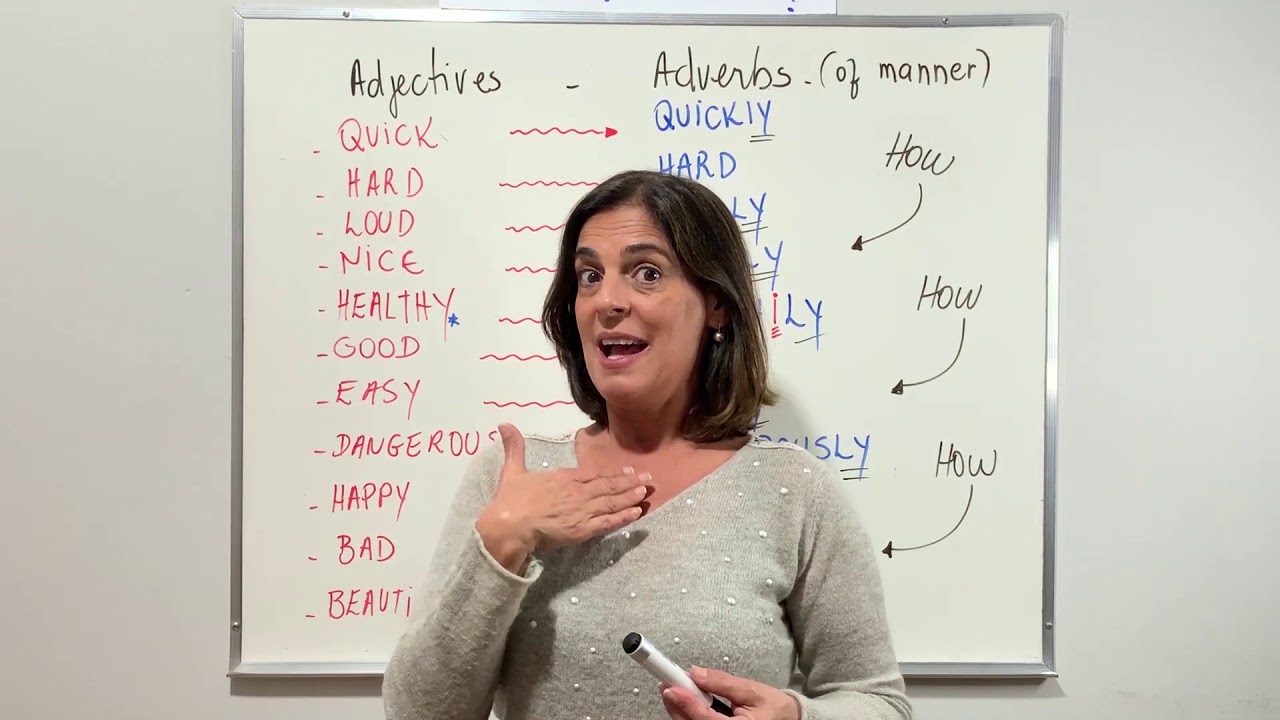 Adjectives - Adverbs. (of manner)
- QUICK QUICKLY
- HARD HARD
- LOUD LY
- NICE LY
- HEALTHY* iLY
- GOOD
- EASY
- DANGEROUS OUSLY
- HAPPY
- BAD
- BEAUTI
HOW
HOW
HOW